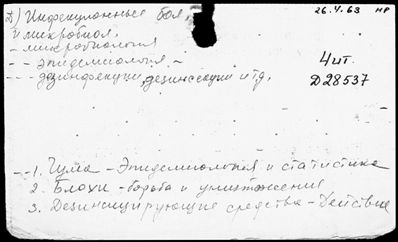 Инфекционные бол.
и микробиол.
- микробиология
- - эпидемиология -
- - - дезинфекции, дезинсекции и т.д.
26.V.63 НР
4 шт.
D 28537
1. Чума - Эпидемиология и статистика
2. Блохи - борьба и уничтожения
3. Дезинсицирующие средства - Действие